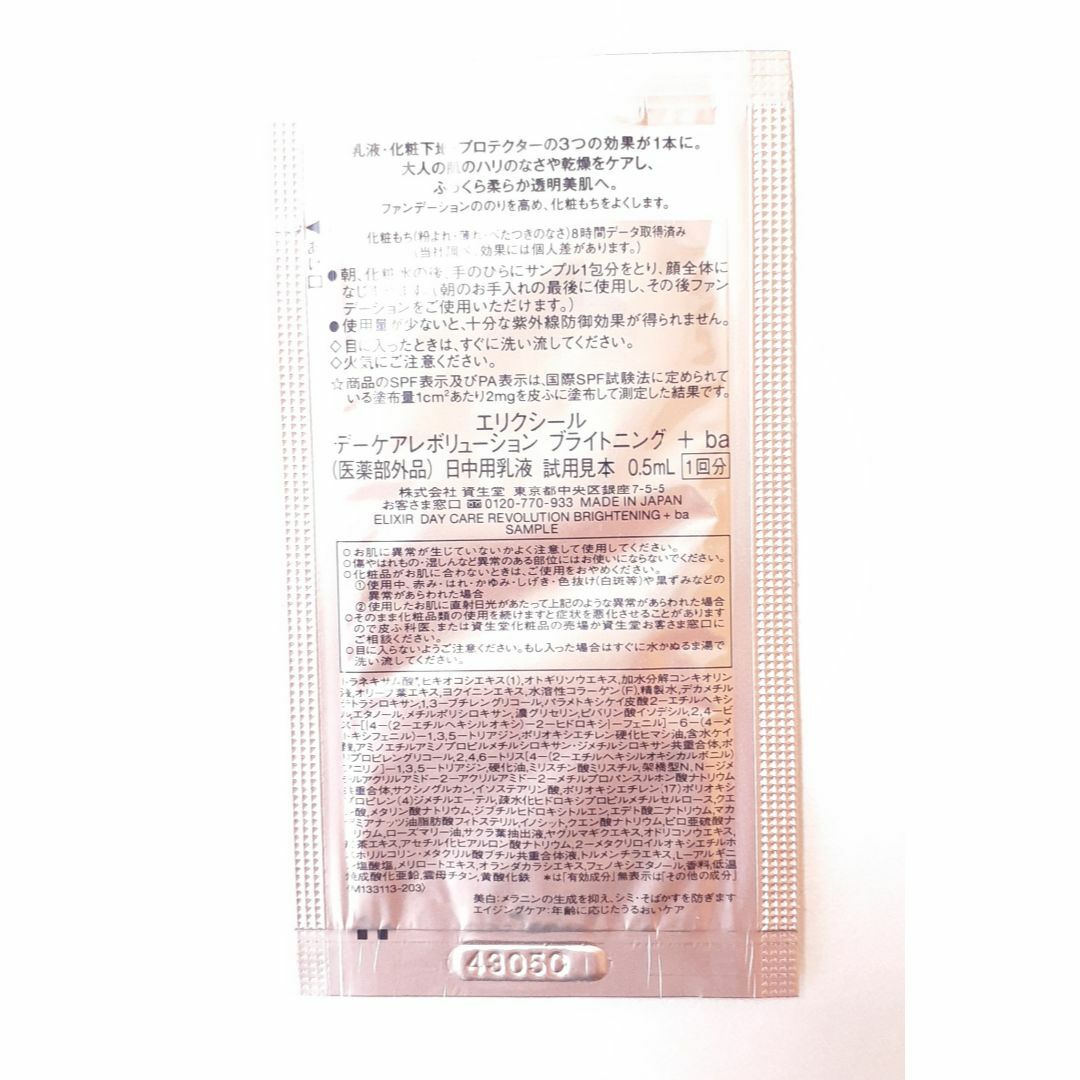 乳液・化粧下地 プロテクターの3つの効果が1本に。
大人の肌のハリのなさや乾燥をケアし、
ふっくら柔らか透明美肌へ。
ファンデーションののりを高め、化粧もちをよくします。
化粧もち(粉よれ・薄れ・べたつきのなさ)8時間データ取得済み
(当社調べ 効果には個人差があります。)
あけ口
●朝、化粧水の後、手のひらにサンプル1包分をとり、顔全体に
なじませます。(朝のお手入れの最後に使用し、その後ファン
デーションをご使用いただけます。)
●使用量が少ないと、十分な紫外線防御効果が得られません。
◇目に入ったときは、すぐに洗い流してください。
◇火気にご注意ください。
☆商品のSPF表示及びPA表示は、国際SPF試験法に定められて
いる塗布量1cm²あたり2mgを皮ふに塗布して測定した結果です。
エリクシール
デーケアレボリューション ブライトニング + ba
(医薬部外品) 日中用乳液 試用見本 0.5mL 1回分
株式会社 資生堂 東京都中央区銀座7-5-5
お客さま窓口 0120-770-933 MADE IN JAPAN
ELIXIR DAY CARE REVOLUTION BRIGHTENING + ba
SAMPLE
○お肌に異常が生じていないかよく注意して使用してください。
○傷やはれもの・湿しんなど異常のある部位にはお使いにならないでください。
○化粧品がお肌に合わないときは、ご使用をおやめください。
①使用中、赤み・はれ・かゆみ・しげき・色抜け(白斑等)や黒ずみなどの
異常があらわれた場合
②使用したお肌に直射日光があたって上記のような異常があらわれた場合
○そのまま化粧品類の使用を続けますと症状を悪化させることがあります
ので皮ふ科医、または資生堂化粧品の売場か資生堂お客さま窓口に
ご相談ください。
○目に入らないようご注意ください。もし入った場合はすぐに水かぬるま湯で
洗い流してください。
トラネキサム酸*,ヒキオコシエキス(1),オトギリソウエキス,加水分解コンキオリン
液,オリーブ葉エキス,ヨクイニンエキス,水溶性コラーゲン(F),精製水,デカメチル
テトラシロキサン,1,3-ブチレングリコール,パラメトキシケイ皮酸2-エチルヘキシ
ル,エタノール,メチルポリシロキサン,濃グリセリン,ピバリン酸イソデシル,2,4-ビ
ス-[{4-(2-エチルヘキシルオキシ)-2-ヒドロキシ}-フェニル]-6-(4-メ
トキシフェニル)-1,3,5-トリアジン,ポリオキシエチレン硬化ヒマシ油,含水ケイ
酸,アミノエチルアミノプロピルメチルシロキサン・ジメチルシロキサン共重合体,ポ
リプロピレングリコール,2,4,6-トリス[4-(2-エチルヘキシルオキシカルボニル)
アニリノ]-1,3,5-トリアジン,硬化油,ミリスチン酸ミリスチル,架橋型N,N-ジメ
チルアクリルアミド-2-アクリルアミド-2-メチルプロパンスルホン酸ナトリウム
共重合体,サクシノグルカン,イソステアリン酸,ポリオキシエチレン(17)ポリオキシ
プロピレン(4)ジメチルエーテル,疎水化ヒドロキシプロピルメチルセルロース,クエ
ン酸,メタリン酸ナトリウム,ジブチルヒドロキシトルエン,エデト酸二ナトリウム,マカ
デミアナッツ油脂肪酸フィトステリル,イノシット,クエン酸ナトリウム,ピロ亜硫酸ナ
トリウム,ローズマリー油,サクラ葉抽出液,ヤグルマギクエキス,オドリコソウエキス,
紅茶エキス,アセチル化ヒアルロン酸ナトリウム,2-メタクリロイルオキシエチルホ
スホリルコリン・メタクリル酸ブチル共重合体液,トルメンチラエキス,L-アルギニ
ン塩酸塩,メリロートエキス,オランダカラシエキス,フェノキシエタノール,香料,低温
焼成酸化亜鉛,雲母チタン,黄酸化鉄 *は「有効成分」無表示は「その他の成分」
(M133113-203)
美白:メラニンの生成を抑え、シミ・そばかすを防ぎます
エイジングケア:年齢に応じたうるおいケア
4305C